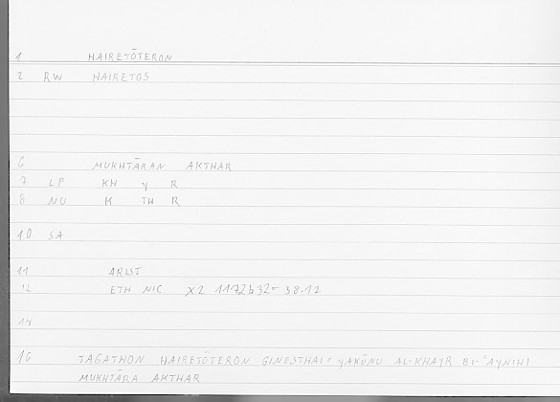 1 HAIRETŌTERON
2 RW HAIRETOS
6 MUKHTĀRAN AKTHAR
7 LP KH Y R
8 NU K TH R
10 SA
11 ARIST
12 ETH NIC X2 1172b32- 38.12
14
16 TAGATHON HAIRETŌTERON GINESTHAI = YAKŪNU AL-KHAYR BI-ʿAYNIHI
MUKHTĀRA AKTHAR